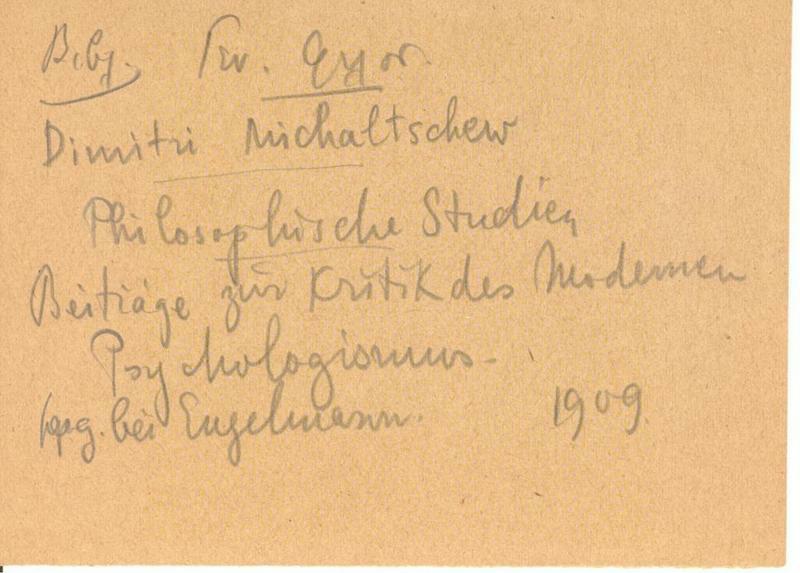 Dimitri Michaltschew
Philosophische Studien
Beiträge zur Kritik des Modernen
Psychologismus.
bei Engelmann. 1909.